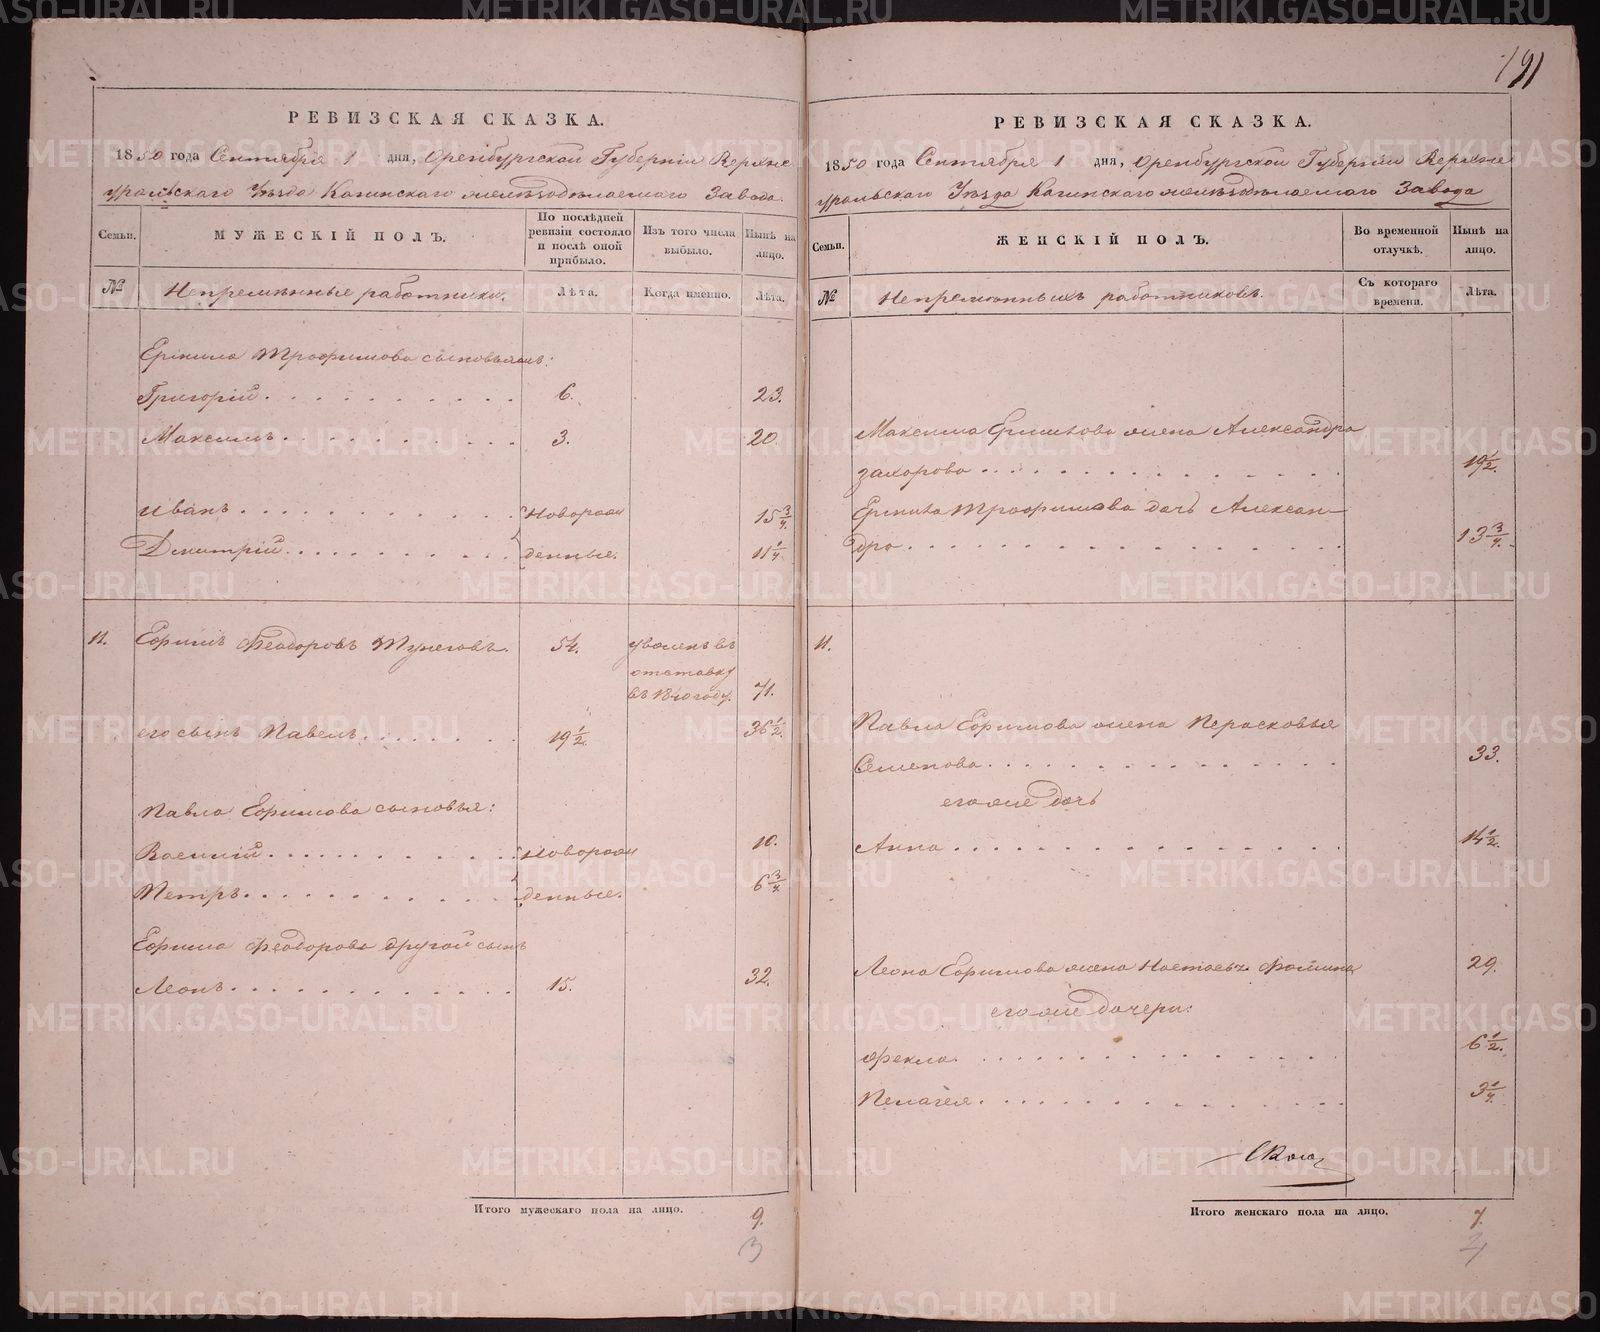 191
РЕВИЗСКАЯ СКАЗКА.
1850 года Сентября 1 дня, Оренбургской Губерніи Верхне
уральскаго Уѣзда Кагинскаго желѣзодѣлаемаго Завода.
Семьи.
МУЖЕСКІЙ ПОЛЪ.
По послѣдней
ревизіи состояло
и послѣ оной
прибыло.
Изъ того числа
выбыло.
Нынѣ на
лицо.
№
Непремѣнные работники.
Лѣта.
Когда именно.
Лѣта.
Трофимова сыновья
Григорій 6. 23.
Максимъ 3. 20.
Иванъ Новорож 15 3/4.
Дмитрій денные. 11 1/4.
11. Ефимъ Феодоровъ 54. уволенъ въ
отставку
въ 1840 году. 71.
его сынъ Павелъ 19 1/2. 36 1/2.
Павла Ефимова сыновья:
Василій Новорож 10.
Петръ денные. 6 3/4.
Ефима Феодорова другой сынъ
Леонъ 15. 32.
Итого мужескаго пола на лицо. 9.
3
РЕВИЗСКАЯ СКАЗКА.
1850 года Сентября 1 дня, Оренбургской Губерніи Верхне
уральскаго Уѣзда Кагинскаго желѣзодѣлаемаго Завода
Семьи.
ЖЕНСКІЙ ПОЛЪ.
Во временной
отлучкѣ.
Нынѣ на
лицо.
№
Непремѣнныхъ работниковъ.
Съ котораго
времени.
Лѣта.
Максима жена Александра
Захарова 19 1/2.
Трофимова дочь Алексан-
дра 13 3/4.
11.
Павла Ефимова жена Прасковья
Семенова 33.
его же дочь
Анна 14 1/2.
Леона Ефимова жена Настасья Фомина 29.
его же дочери:
Фекла 6 1/2.
Пелагея 3 1/4.
Итого женскаго пола на лицо. 7.
METRIKI.GASO-URAL.RU